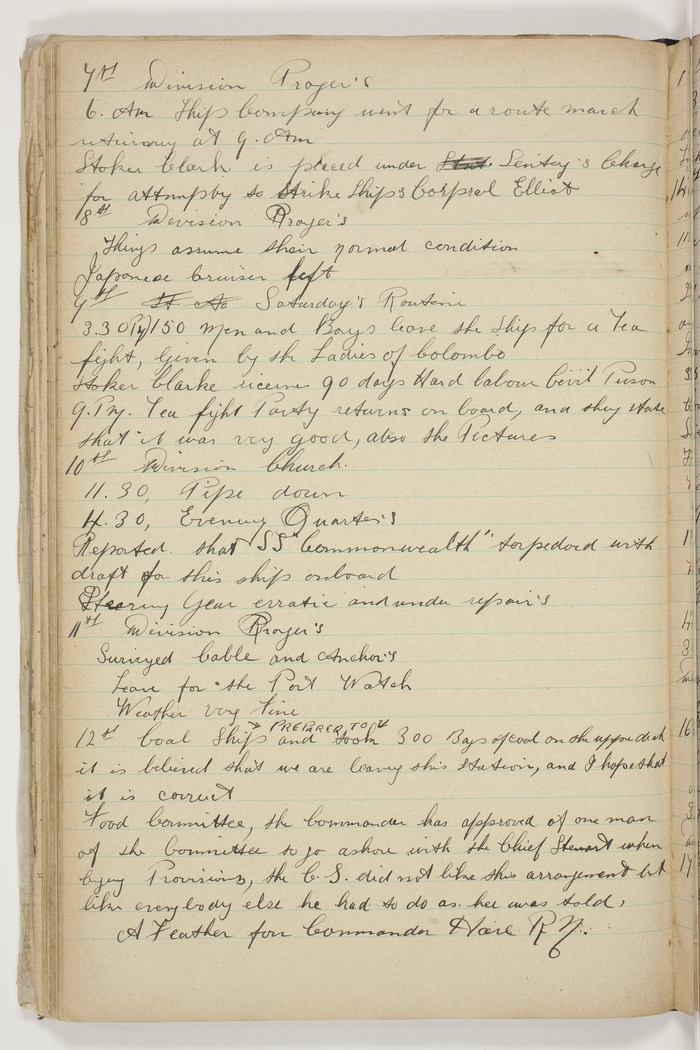 7th Division Prayer's
6. Am Ship Company went for a route march
returning at 9. Am
Stoker Clark is placed under Sentry's Charge
for attempby to strike Ships Corpral Elliot
8th Devision Prayer's
Things assume their normal condition
Japanese Cruiser left
9th Saturday's Routine
3.30 PM 150 Men and Boys leave the Ship for a Tea
fight, Given by the Ladies of Colombo
Stoker Clarke receives 90 days Hard labour Civil Prison
9. P.M. Tea fight Party returns on board, and they state
that it was very good, also the Pictures
10th Division Church.
11.30, Pipe down
4.30, Evening Quarter's
Reported that SS "Commonwealth" torpedoed with
draft for this ship onboard
Stearing Gear erratic and under repair's
11th Division Prayer's
Surveyed Cable and Anchor's
Leave for the Port Watch
Weather very Fine
PREPARED TO
12th Coal Ship and took 300 Bags of coal on the upper deck
it is belived that we are leaving this Station, and I hope that
it is correct
Food Committee, the Commander has approved of one man
of the Committee to go ashore with the Chief Stewart when
bying Provisions, the C.S. did not like this arrangement but
like everybody else he had to do as hee was told,
A Feather for Commander Hare R N.